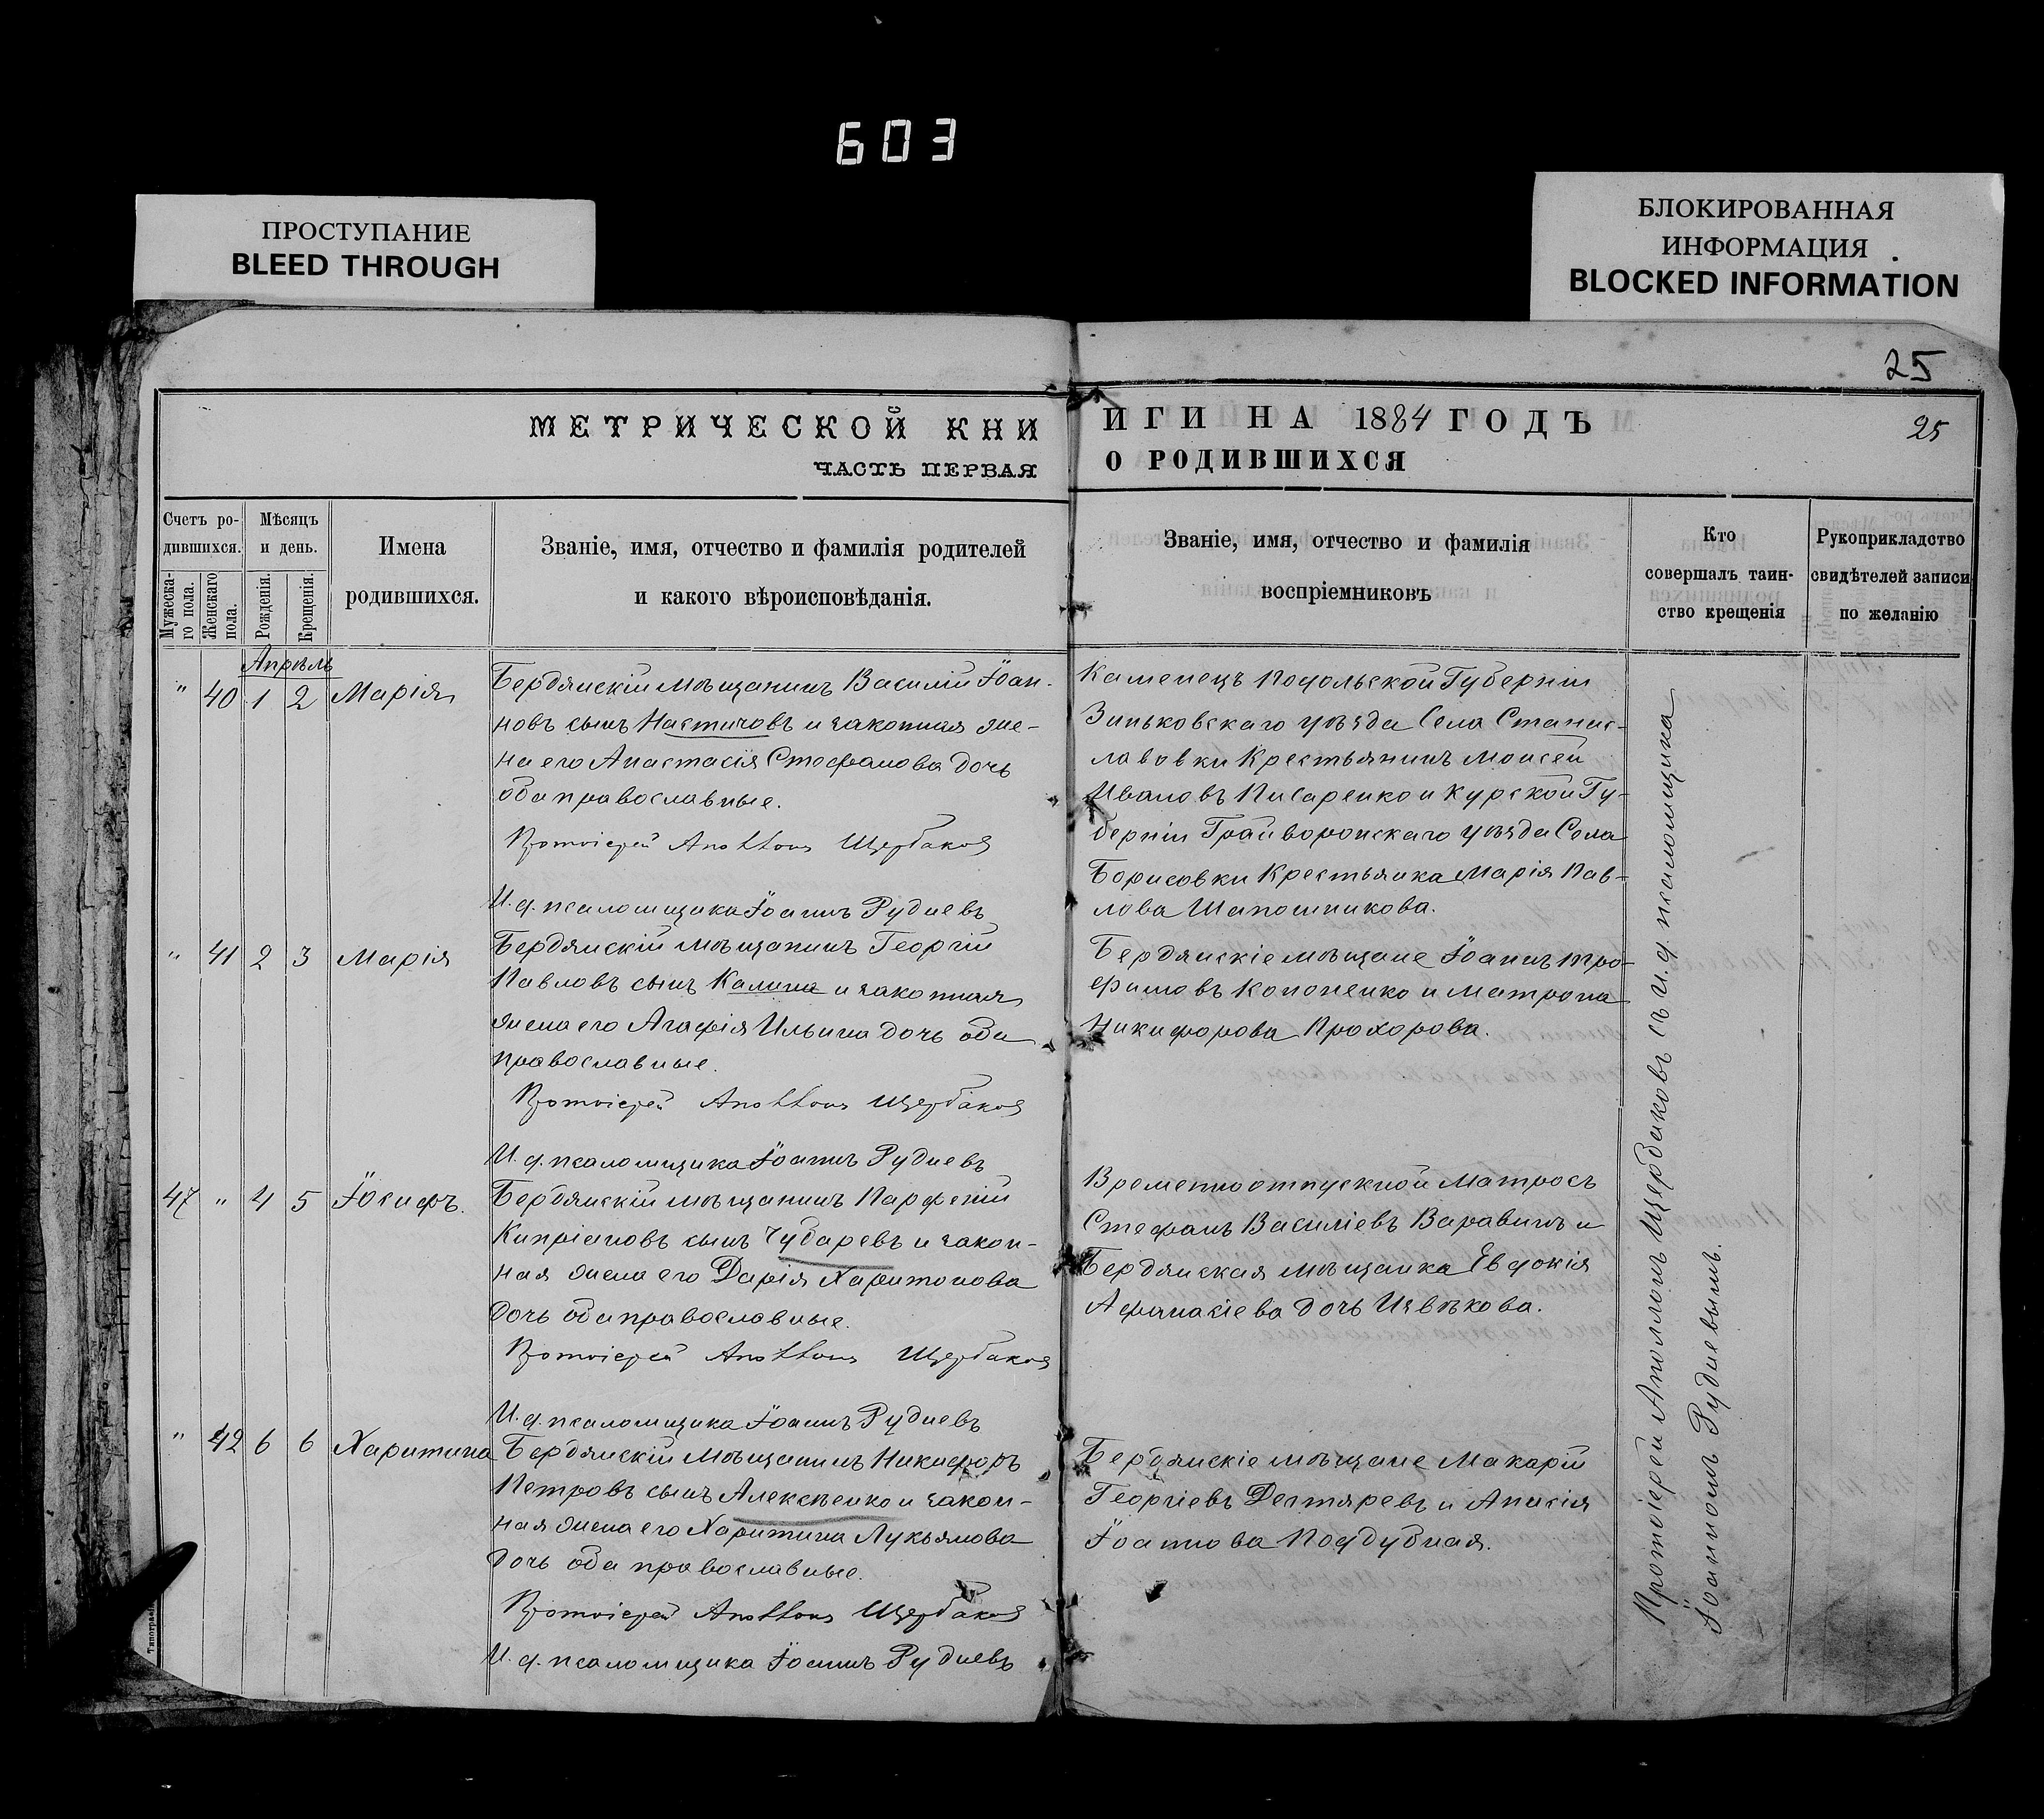 603
ПРОСТУПАНИЕ
BLEED THROUGH
БЛОКИРОВАННАЯ
ИНФОРМАЦИЯ
BLOCKED INFORMATION
25
МЕТРИЧЕСКОЙ КНИ
ЧАСТЬ ПЕРВАЯ
ИГИ НА 1884 ГОДЪ
О РОДИВШИХСЯ
25
Счетъ ро-
дившихся.
Мужеска-
го пола.
Женскаго
пола.
Мѣсяцъ
и день.
Рожденія.
Крещенія.
Имена
родившихся.
Званіе, имя, отчество и фамилія родителей
и какого вѣроисповѣданія.
Званіе, имя, отчество и фамилія
воспріемниковъ
Кто
совершалъ таин-
ство крещенія
Рукоприкладство
свидѣтелей записи
по желанію
Апрѣль
" 40 1 2 Марія
Бердянскій мѣщанинъ Василій Іоан-
новъ сынъ Настичовъ и законная же-
на его Анастасія Стефанова дочь
оба православные.
Протоіерей Аполлонъ Щербаковъ
И.д. псаломщика Іоаннъ Рудневъ
Каменецъ Подольской Губерніи
Зиньковскаго уѣзда Села Станис-
лавовки Крестьянинъ Моисей
Ивановъ Писаренко и Курской Гу-
берніи Грайворонскаго уѣзда Села
Борисовки Крестьянка Марія Пав-
лова Шапошникова.
" 41 2 3 Марія
Бердянскій мѣщанинъ Георгій
Павловъ сынъ Калина и законная
жена его Агафія Ильина дочь оба
православные.
Протоіерей Аполлонъ Щербаковъ
И.д. псаломщика Іоаннъ Рудневъ
Бердянскіе мѣщане Іоаннъ Тро-
фимовъ Кононенко и Матрона
Никифорова Прохорова.
47 " 4 5 Іосифъ.
Бердянскій мѣщанинъ Парфеній
Кипріановъ сынъ Чударевъ и закон-
ная жена его Дарія Харитонова
дочь оба православные.
Протоіерей Аполлонъ Щербаковъ
И.д. псаломщика Іоаннъ Рудневъ
Временно отпускной Матросъ
Стефанъ Василіевъ Варавинъ и
Бердянская мѣщанка Евдокія
Афанасіева дочь Извѣкова.
" 42 6 6 Харитина
Бердянскій мѣщанинъ Никифоръ
Петровъ сынъ Алексѣенко и закон-
ная жена его Харитина Лукьянова
дочь оба православные.
Протоіерей Аполлонъ Щербаковъ
И.д. псаломщика Іоаннъ Рудневъ
Бердянскіе мѣщане Макарій
Георгіевъ Дегтяревъ и Анисія
Іоаннова Поддубная.
Протоіерей Аполлонъ Щербаковъ съ и.д. псаломщика
Іоанномъ Рудневымъ.